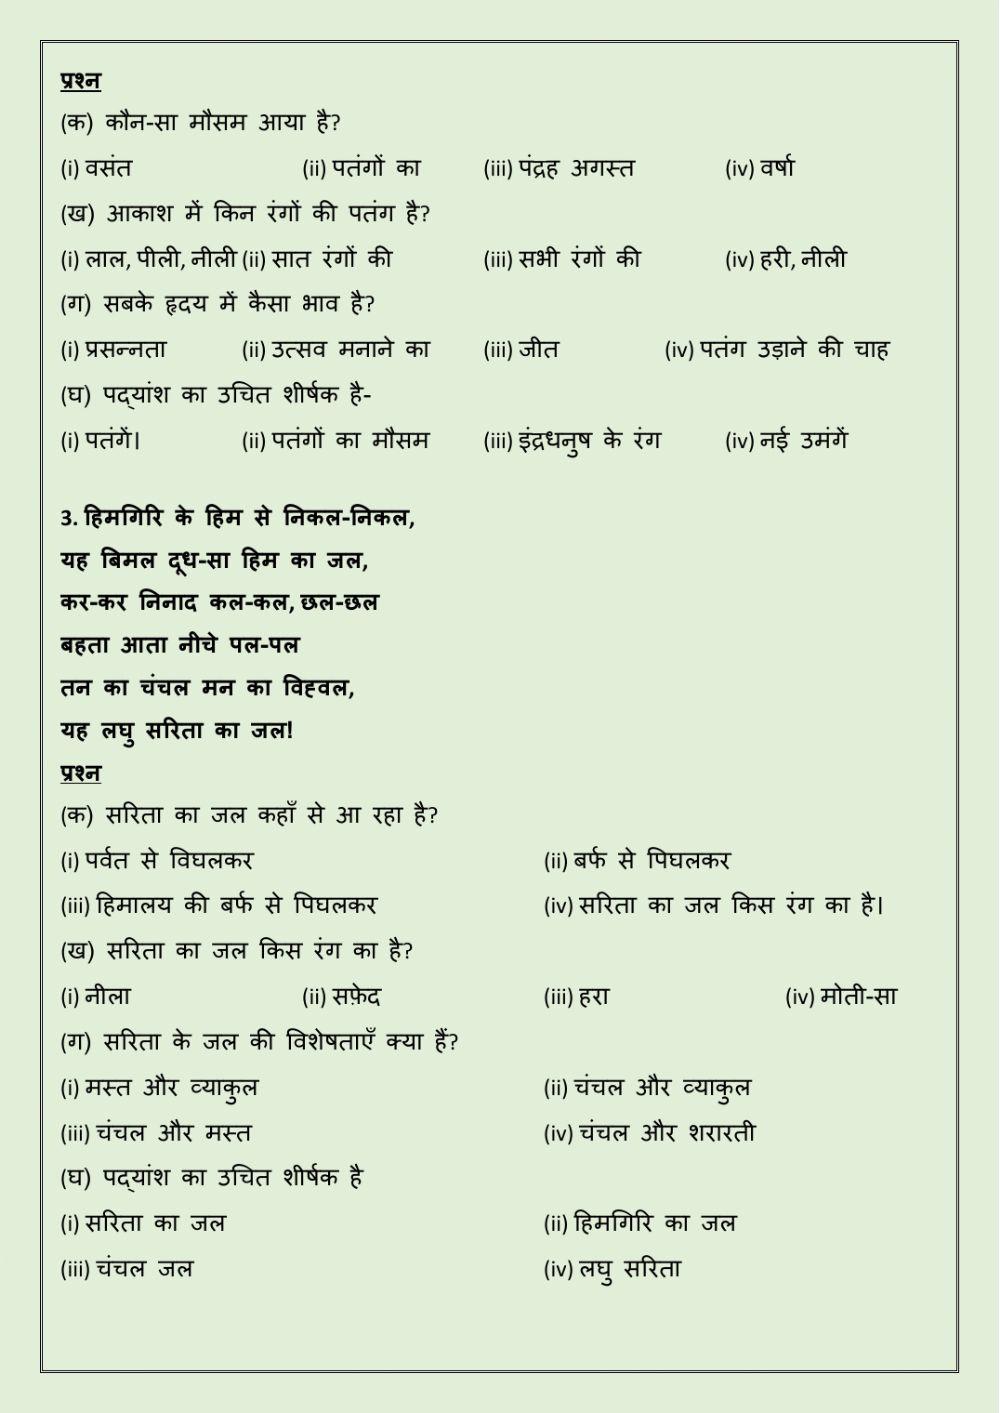 प्रश्न
(क) कौन-सा मौसम आया है?
(i) वसंत (ii) पतंगों का (iii) पंद्रह अगस्त (iv) वर्षा
(ख) आकाश में किन रंगों की पतंग है?
(i) लाल, पीली, नीली (ii) सात रंगों की (iii) सभी रंगों की (iv) हरी, नीली
(ग) सबके हृदय में कैसा भाव है?
(i) प्रसन्नता (ii) उत्सव मनाने का (iii) जीत (iv) पतंग उड़ाने की चाह
(घ) पद्यांश का उचित शीर्षक है-
(i) पतंगें। (ii) पतंगों का मौसम (iii) इंद्रधनुष के रंग (iv) नई उमंगें
3. हिमगिरि के हिम से निकल-निकल,
यह बिमल दूध-सा हिम का जल,
कर-कर निनाद कल-कल, छल-छल
बहता आता नीचे पल-पल
तन का चंचल मन का विह्वल,
यह लघु सरिता का जल!
प्रश्न
(क) सरिता का जल कहाँ से आ रहा है?
(i) पर्वत से विघलकर (ii) बर्फ से पिघलकर
(iii) हिमालय की बर्फ से पिघलकर (iv) सरिता का जल किस रंग का है।
(ख) सरिता का जल किस रंग का है?
(i) नीला (ii) सफ़ेद (iii) हरा (iv) मोती-सा
(ग) सरिता के जल की विशेषताएँ क्या हैं?
(i) मस्त और व्याकुल (ii) चंचल और व्याकुल
(iii) चंचल और मस्त (iv) चंचल और शरारती
(घ) पद्यांश का उचित शीर्षक है
(i) सरिता का जल (ii) हिमगिरि का जल
(iii) चंचल जल (iv) लघु सरिता